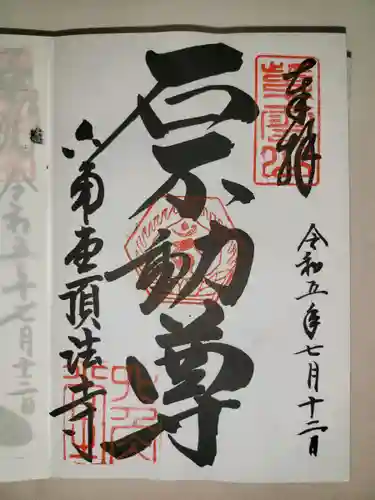 奉拝
令和五年七月十二日
石不動尊
六角堂頂法寺
令和五年七月十二日